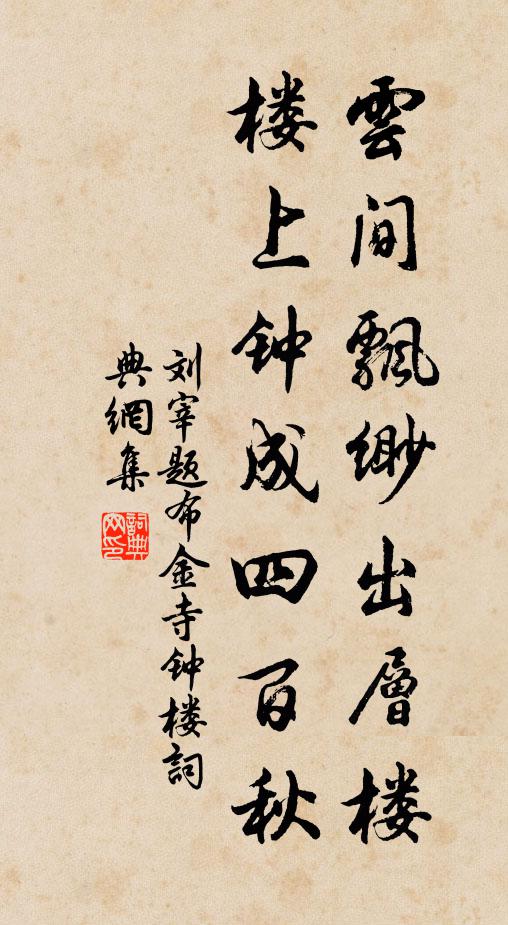 雲间飘缈出層楼
楼上钟成四百秋
刘宰题布金寺钟楼詞
典網集
詞典網印